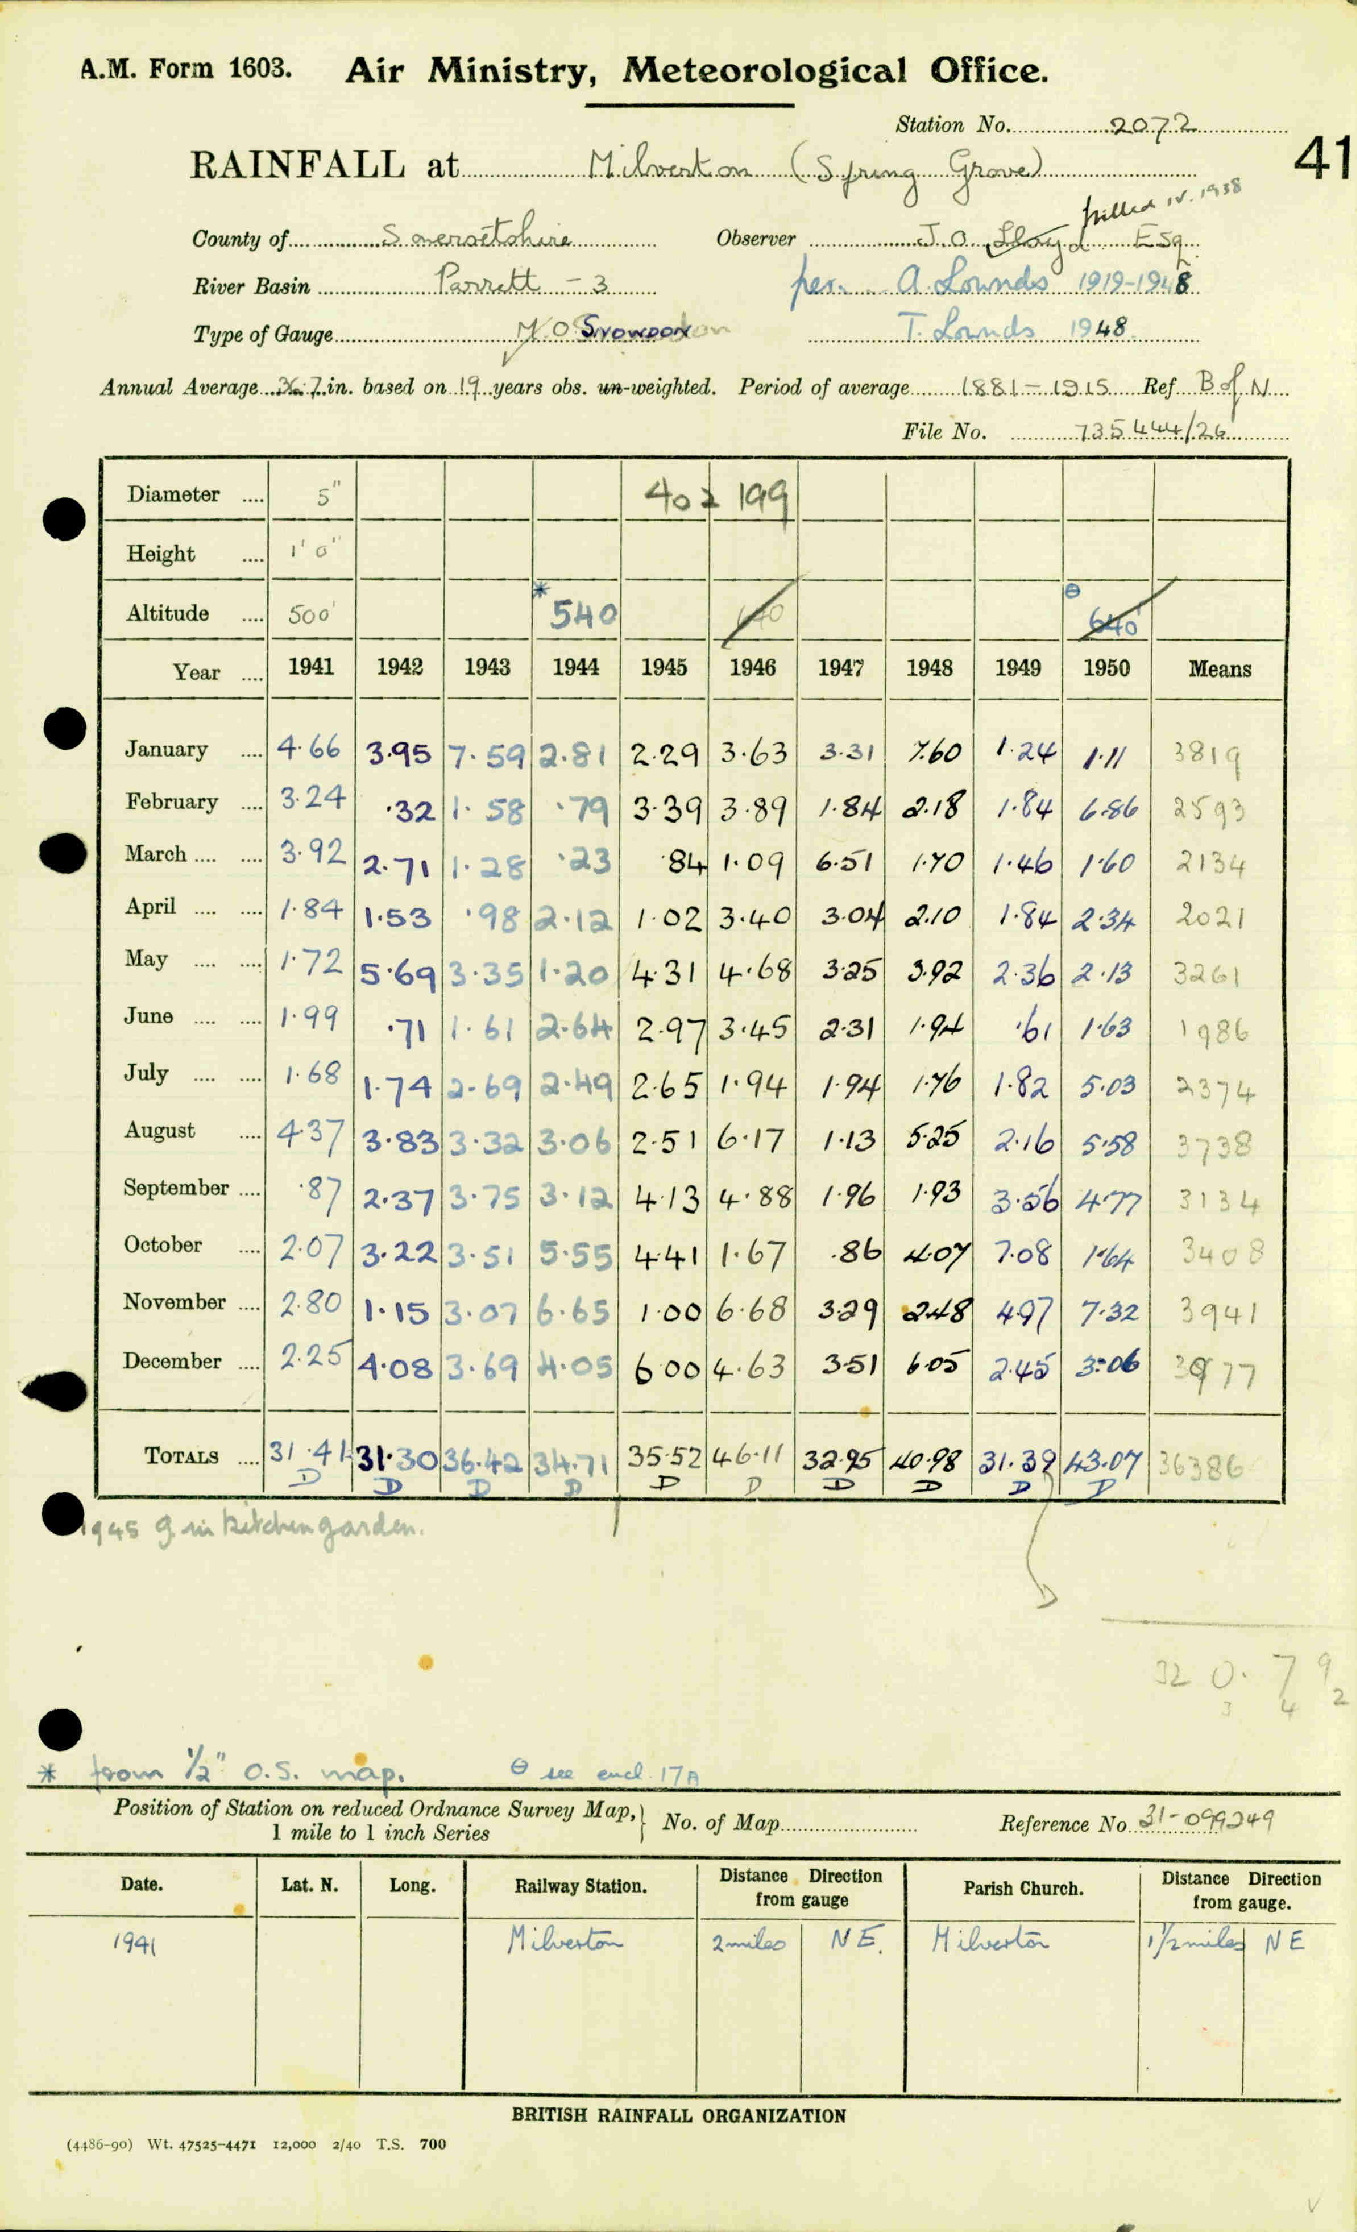 A.M. Form 1603. Air Ministry, Meteorological Office.
Station No. 2072
41
RAINFALL at Milverton (Spring Grove)
killed IV. 1938
County of Somersetshire Observer J O Lloyd Esq.
River Basin Parrett - 3 per. A Lounds 1919-1948
Type of Gauge M.O. Snowdon T. Lounds 1948.
Annual Average 36.7 in. based on 19 years obs. un-weighted. Period of average 1881-1915 Ref B of N
File No. 735444/26
Diameter .... 5" 402 199
Height .... 1' 0"
Altitude .... 500' * 540 640 ⊖ 640'
Year .... 1941 1942 1943 1944 1945 1946 1947 1948 1949 1950 Means
January .... 4.66 3.95 7.59 2.81 2.29 3.63 3.31 7.60 1.24 1.11 3819
February .... 3.24 .32 1.58 .79 3.39 3.89 1.84 2.18 1.84 6.86 2593
March .... .... 3.92 2.71 1.28 .23 .84 1.09 6.51 1.70 1.46 1.60 2134
April .... .... 1.84 1.53 .98 2.12 1.02 3.40 3.04 2.10 1.84 2.34 2021
May .... .... 1.72 5.69 3.35 1.20 4.31 4.68 3.25 3.92 2.36 2.13 3261
June .... .... 1.99 .71 1.61 2.64 2.97 3.45 2.31 1.94 .61 1.63 1986
July .... .... 1.68 1.74 2.69 2.49 2.65 1.94 1.94 1.76 1.82 5.03 2374
August .... 4.37 3.83 3.32 3.06 2.51 6.17 1.13 5.25 2.16 5.58 3738
September .... .87 2.37 3.75 3.12 4.13 4.88 1.96 1.93 3.56 4.77 3134
October .... 2.07 3.22 3.51 5.55 4.41 1.67 .86 4.07 7.08 1.64 3408
November .... 2.80 1.15 3.07 6.65 1.00 6.68 3.29 2.48 4.97 7.32 3941
December .... 2.25 4.08 3.69 4.05 6.00 4.63 3.51 6.05 2.45 3.06 3977
TOTALS .... 31.41 31.30 36.42 34.71 35.52 46.11 32.95 40.98 31.39 43.07 36386
D D D D D D D D D D
1945 g. in kitchen garden.
32 0. 7 9
3 4 2
* from 1/2" O.S. map. ⊖ see encl. 17A
Position of Station on reduced Ordnance Survey Map, 1 mile to 1 inch Series } No. of Map Reference No 31-099249
Date. Lat. N. Long. Railway Station. Distance Direction from gauge Parish Church. Distance Direction from gauge.
1941 Milverton 2 miles NE. Milverton 1 1/2 miles NE
BRITISH RAINFALL ORGANIZATION
(4486-90) Wt. 47525-4471 12,000 2/40 T.S. 700